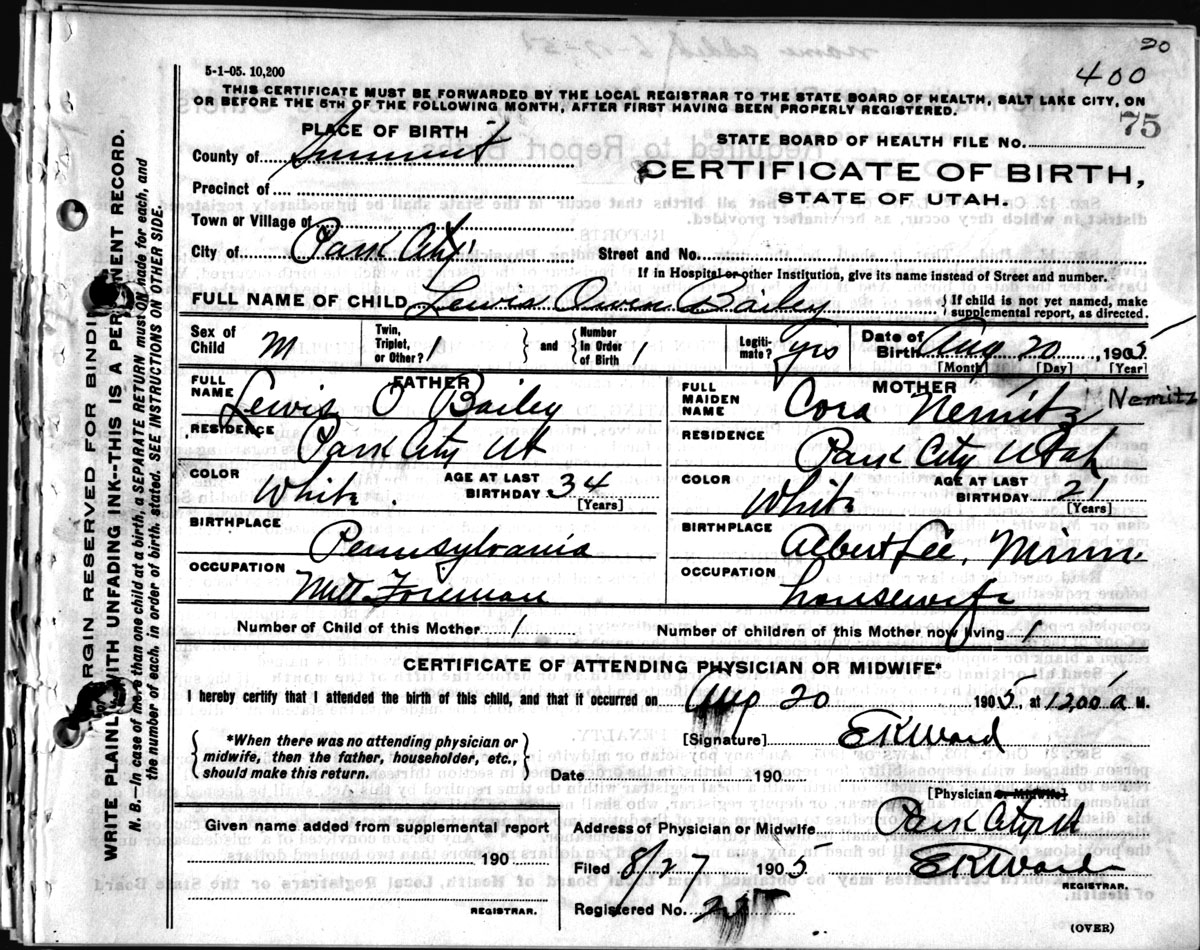 20
400
5-1-05. 10,200
THIS CERTIFICATE MUST BE FORWARDED BY THE LOCAL REGISTRAR TO THE STATE BOARD OF HEALTH, SALT LAKE CITY, ON
OR BEFORE THE 5TH OF THE FOLLOWING MONTH, AFTER FIRST HAVING BEEN PROPERLY REGISTERED.
75
PLACE OF BIRTH
STATE BOARD OF HEALTH FILE NO.
County of Summit
CERTIFICATE OF BIRTH,
STATE OF UTAH.
Precinct of
Town or Village of
City of Park City
Street and No.
If in Hospital or other Institution, give its name instead of Street and number.
FULL NAME OF CHILD Lewis Owen Bailey } If child is not yet named, make supplemental report, as directed.
Sex of Child M Twin, Triplet, or Other? 1 } and { Number In Order of Birth 1 Legiti-mate? yes Date of Birth Aug 20, 1905
[Month] [Day] [Year]
FATHER
MOTHER
FULL NAME Lewis O Bailey
FULL MAIDEN NAME Cora Nemitz Nemitz
RESIDENCE Park City Ut
RESIDENCE Park City Utah
COLOR White AGE AT LAST BIRTHDAY 34 [Years]
COLOR White AGE AT LAST BIRTHDAY 21 [Years]
BIRTHPLACE Pennsylvania
BIRTHPLACE Albert Lee, Minn
OCCUPATION Mill Foreman
OCCUPATION housewife
Number of Child of this Mother 1 Number of children of this Mother now living 1
CERTIFICATE OF ATTENDING PHYSICIAN OR MIDWIFE*
I hereby certify that I attended the birth of this child, and that it occurred on Aug 20 1905, at 12,00 a M.
{ *When there was no attending physician or midwife, then the father, householder, etc., should make this return. }
[Signature] E K Ward
Date 190
[Physician or Midwife]
Given name added from supplemental report
190
REGISTRAR.
Address of Physician or Midwife Park City Ut
Filed 8/27 1905 E K Ward
REGISTRAR.
Registered No.
(OVER)
MARGIN RESERVED FOR BINDING
WRITE PLAINLY WITH UNFADING INK--THIS IS A PERMANENT RECORD.
N. B.--In case of more than one child at a birth, a SEPARATE RETURN must be made for each, and
the number of each, in order of birth, stated. SEE INSTRUCTIONS ON OTHER SIDE.